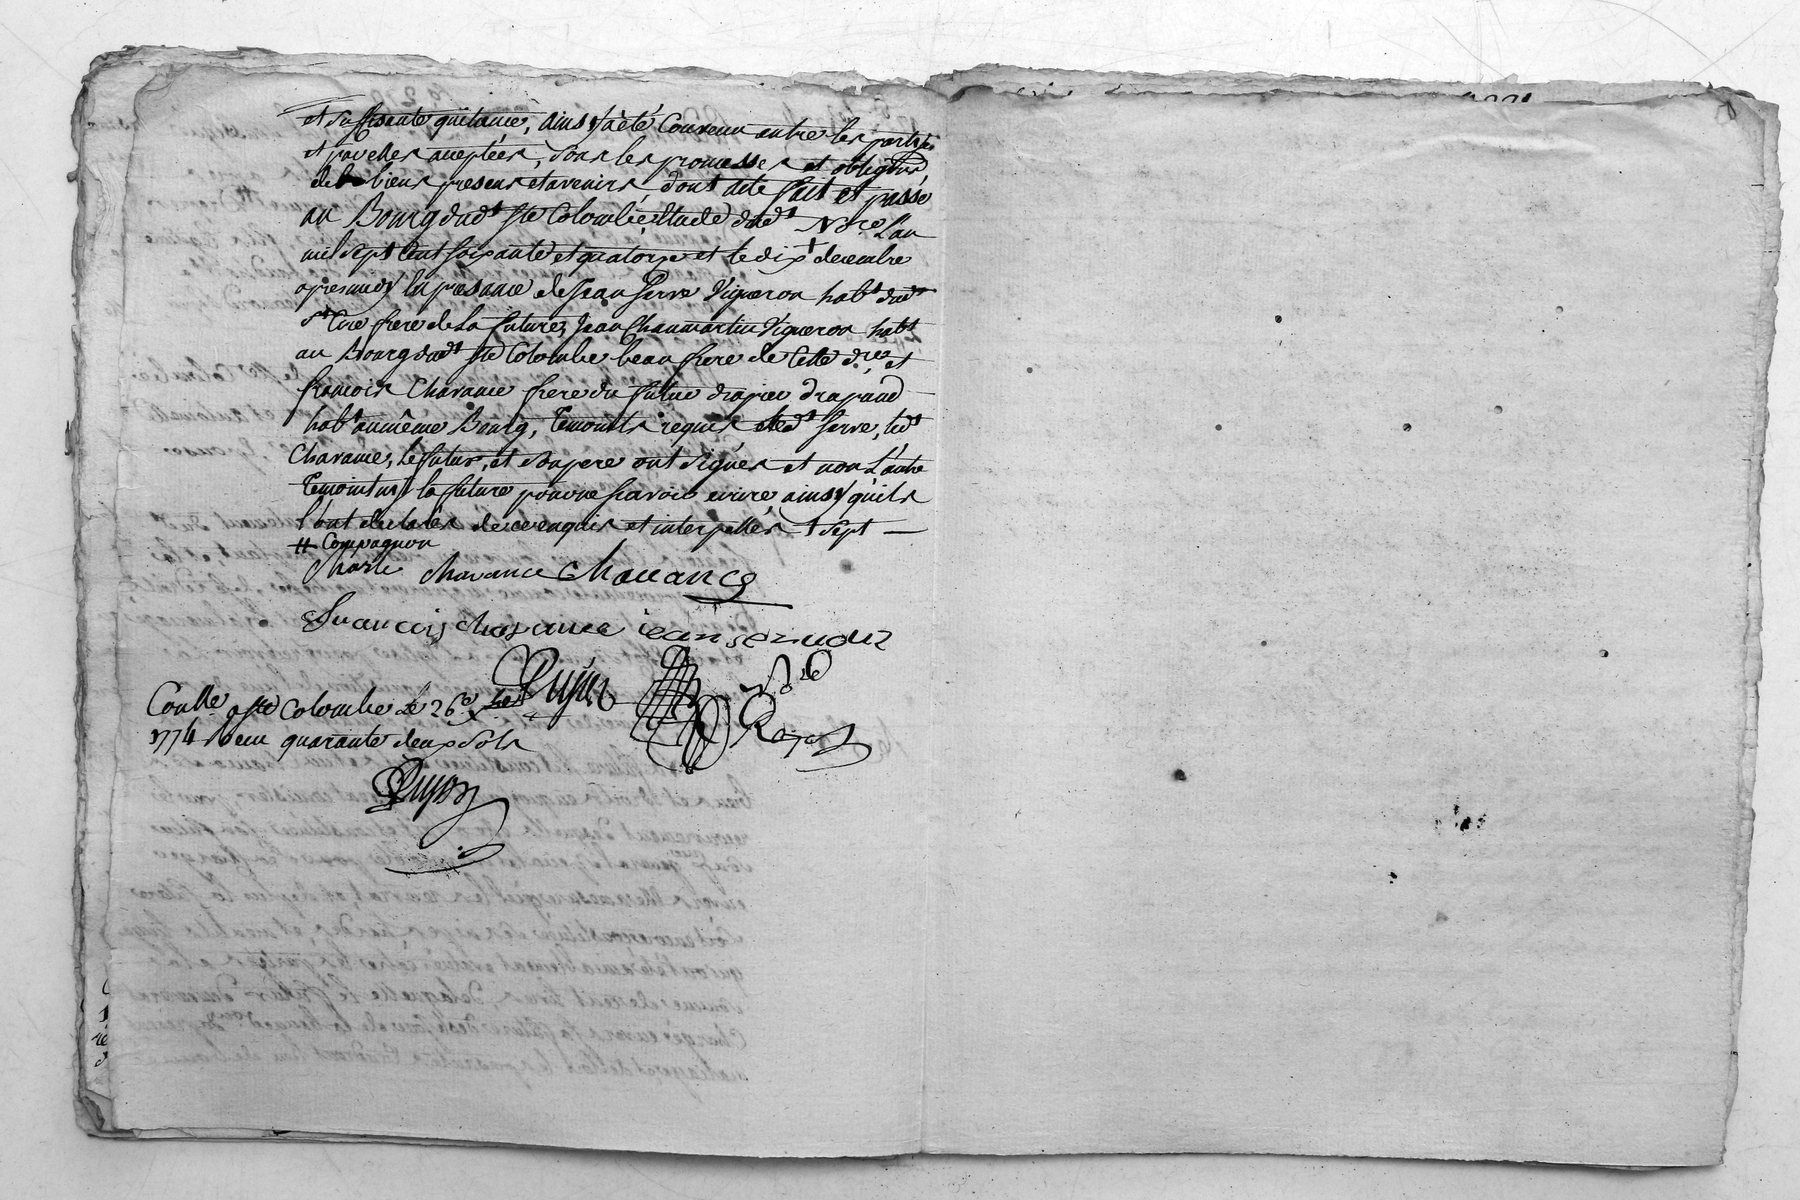 et suffisante quitance, ainsy a été Convenu entre les parties
et par elles acceptées, sous les promesses et obligõns
de biens presens et avenirs dont acte fait et passé
au Bourg dud.t Ste Colombe, Etude dud.t No.re L'an
mil sept Cent soixante et quatorze et le dix † decembre
apres midy en presance de Jean Serve Vigneron hab.t dud.t
St Cire frere de La future, Jean Chaumartin Vigneron hab.t
au Bourg dud.t Ste Colombe beau frere de Cette d.re et
francois Charance frere du futur drapier drapand
hab.t au même Bourg, Temoins requis led.t Serve, led.t
Charance, Le futur, et son pere ont signés et non L'autre
Temoin ny la future pour ne scavoir ecrire ainsy qu'ils
l'ont declarés de ce enquis et interpellés † sept
# Compagnon
Charle charance charance
francois charance iean
Puy No.re
Conlle a Ste Colombe Le 26e
1774 Recu quarante deux sols